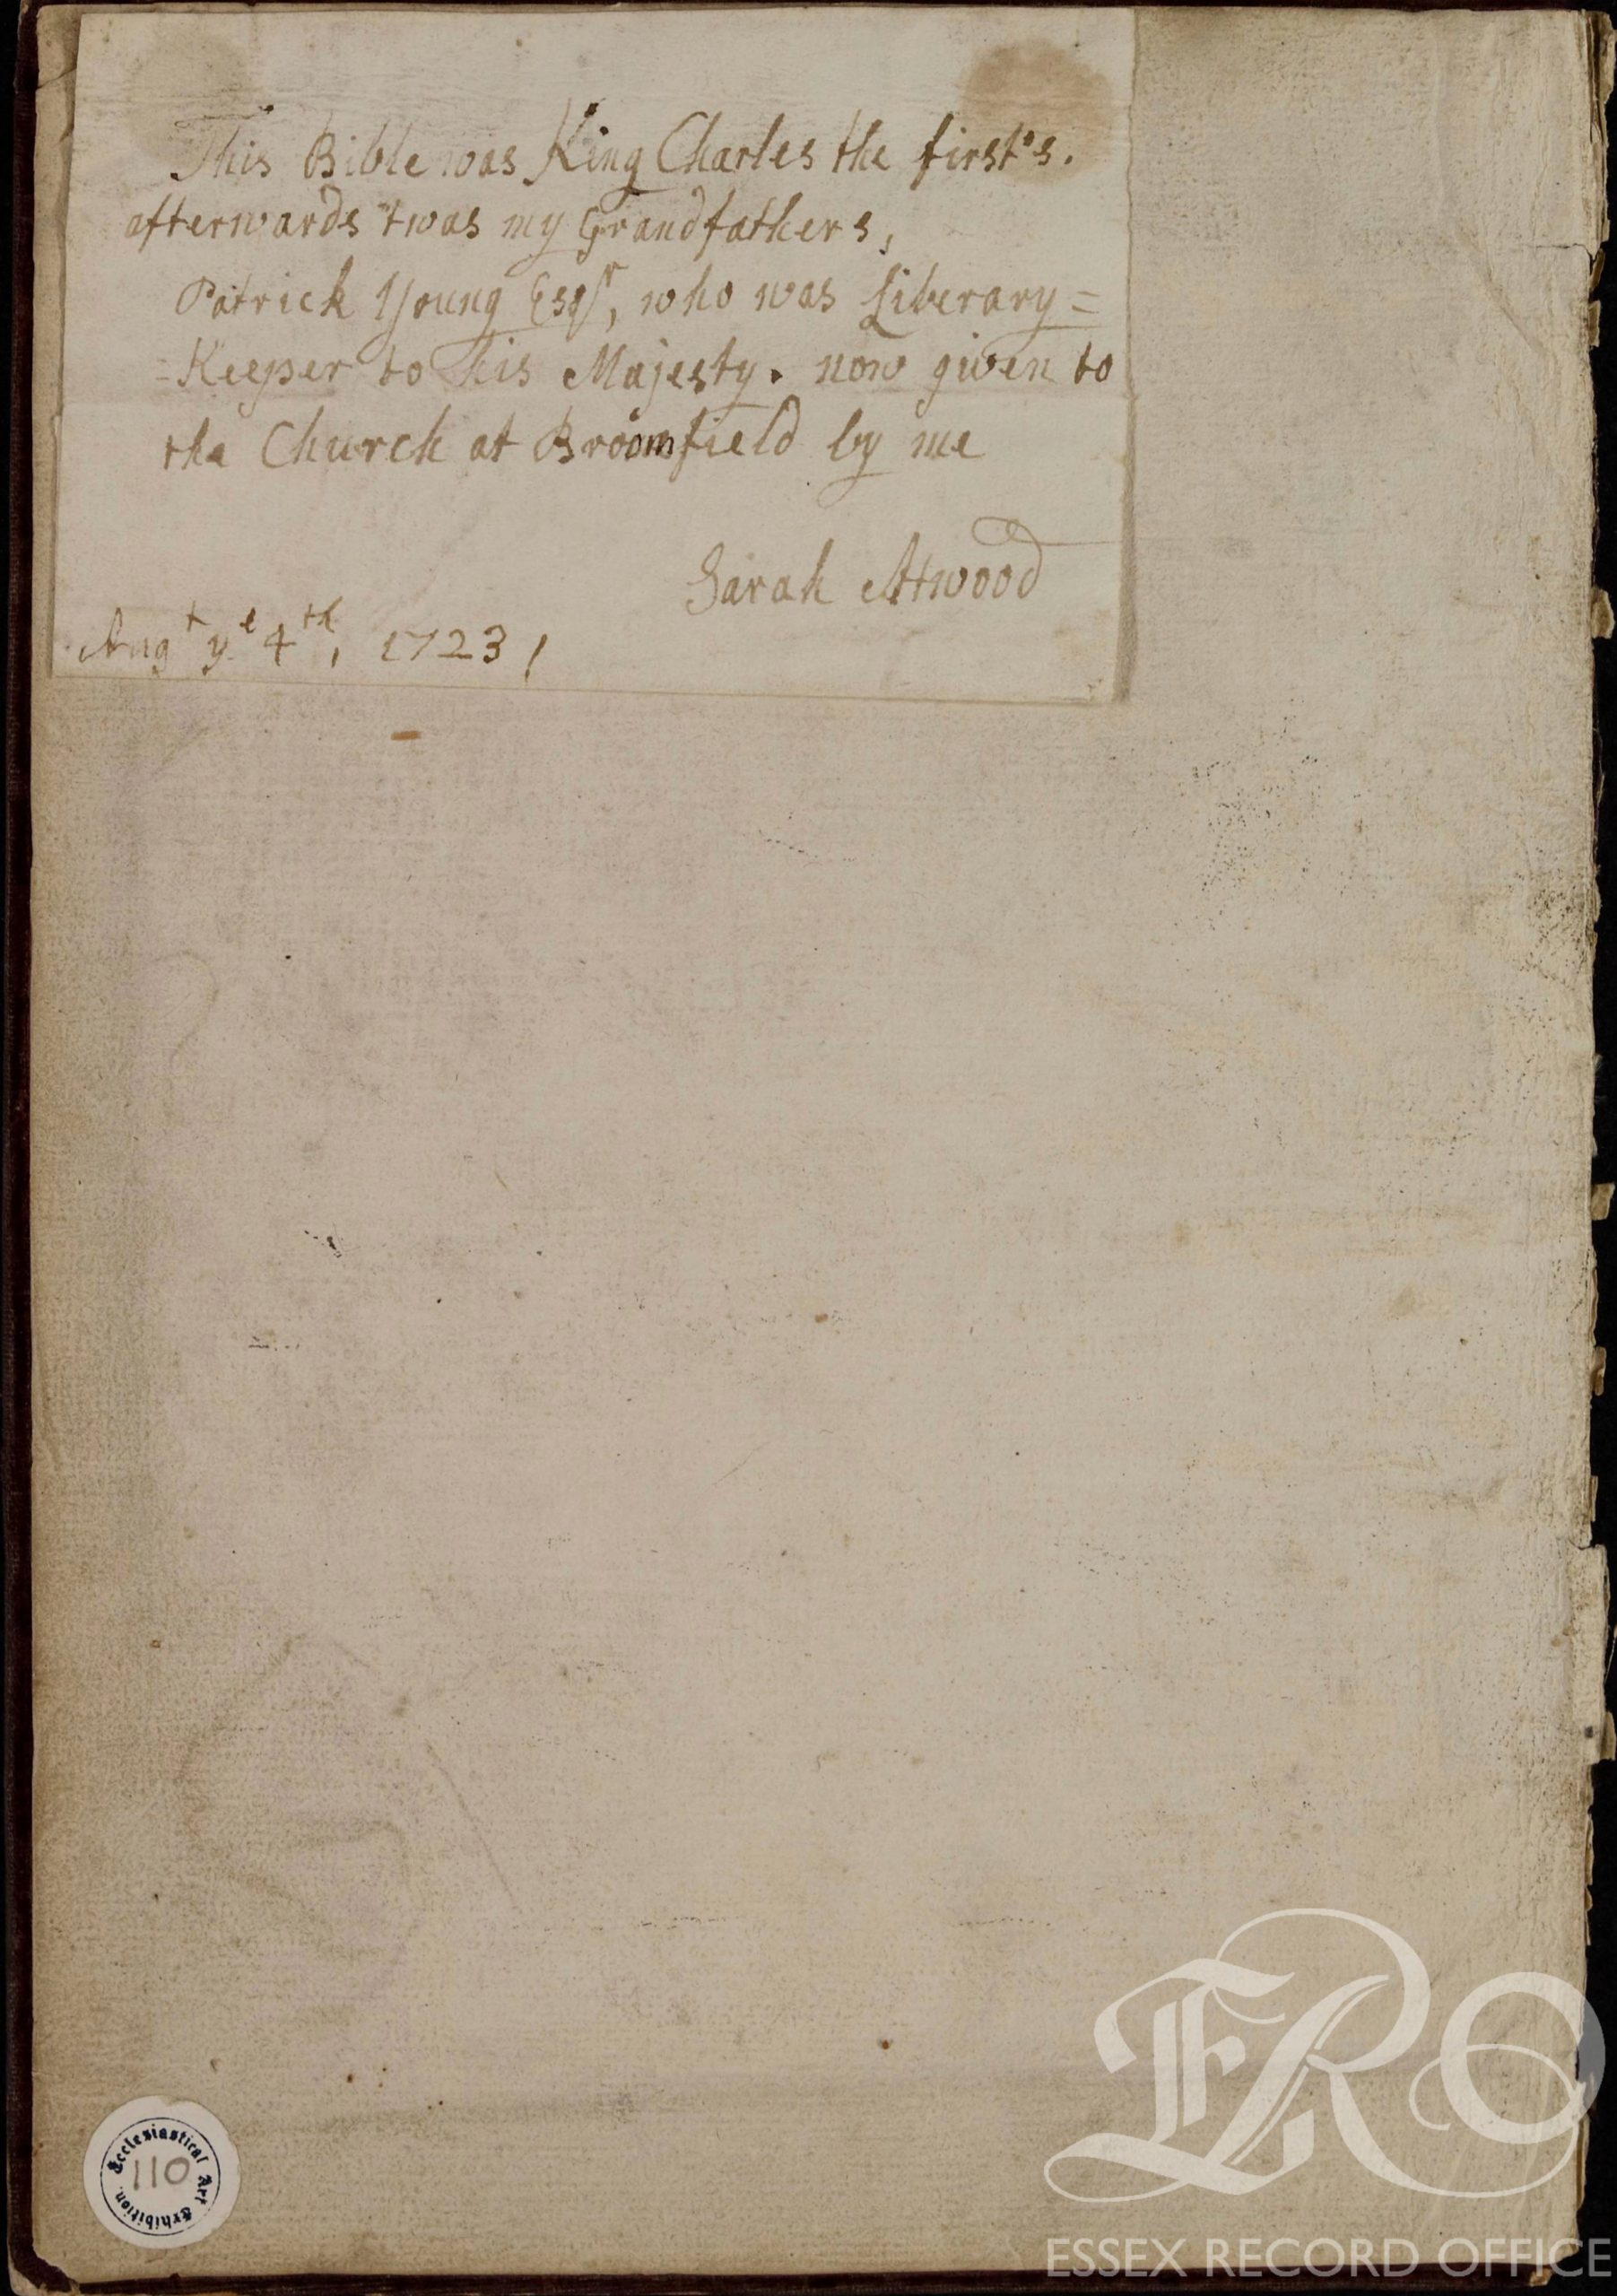 This Bible was King Charles the first's.
afterwards 'twas my Grandfathers,
Patrick Young Esqr, who was Liberary=
=Keeper to his Majesty. now given to
the Church at Broomfield by me
Sarah Atwood
Augt ye 4th, 1723,
Ecclesiastical Art Exhibition.
110
ERO
ESSEX RECORD OFFICE